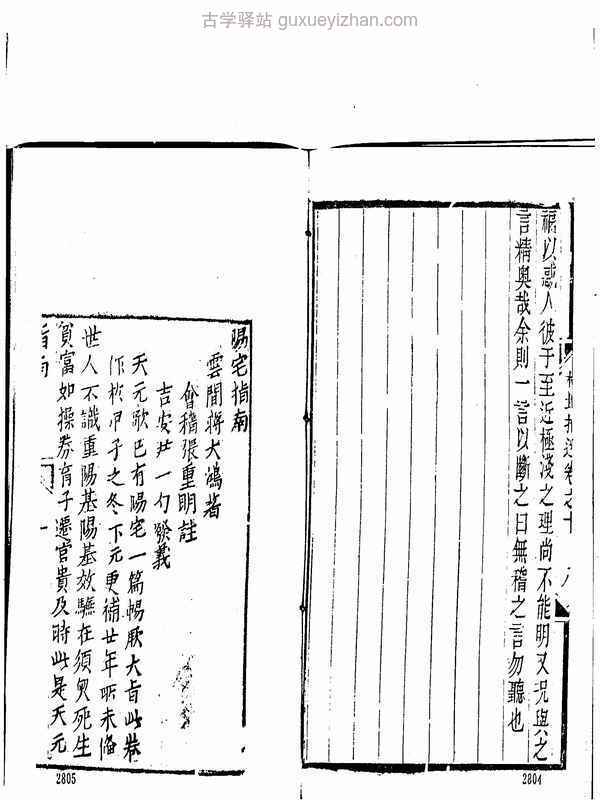 古学驿站 guxueyizhan.com
福以惑人彼于至近極淺之理尚不能明又况與之
言精奥哉余則一言以斷之曰無稽之言勿聽也
卷之十
2804
陽宅指南
雲間蔣大鴻著
會稽張重明註
吉安尹一勺發義
天元歌巳有陽宅一篇暢厥大旨此卷
作於甲子之冬下元更補廿年所未備
世人不識重陽基陽基效驗在須臾死生
貧富如操券育子遷官貴及時此是天元
指南
一
2805